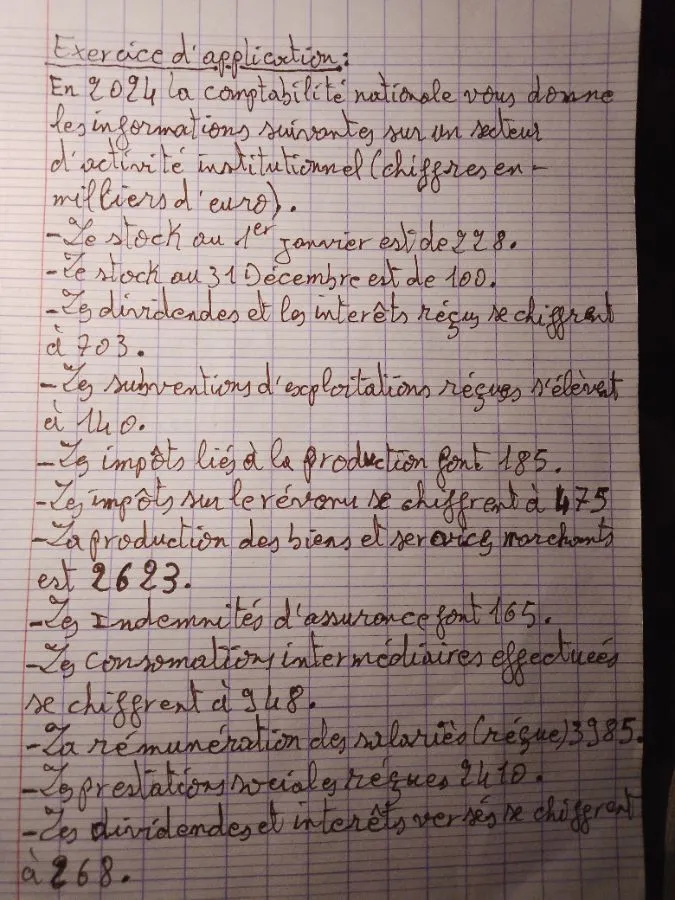 Exercice d'application:
En 2024 la comptabilité nationale vous donne
les informations suivantes sur un secteur
d'activité institutionnel (chiffres en -
milliers d'euro).
-Le stock au 1er janvier est de 228.
-Le stock au 31 Décembre est de 100.
-Les dividendes et les interêts réçus se chiffrent
à 703.
-Les subventions d'exploitations réçues s'élèvent
à 140.
-Les impôts liés à la production font 185.
-Les impôts sur le révenu se chiffrent à 475
-La production des biens et services marchants
est 2623.
-Les Indemnités d'assurance font 165.
-Les consomations intermédiaires effectuées
se chiffrent à 948.
-La rémunération des salariés (réçue) 3985.
-Les prestations sociales réçues 2410.
-Les dividendes et interêts versés se chiffrent
à 268.